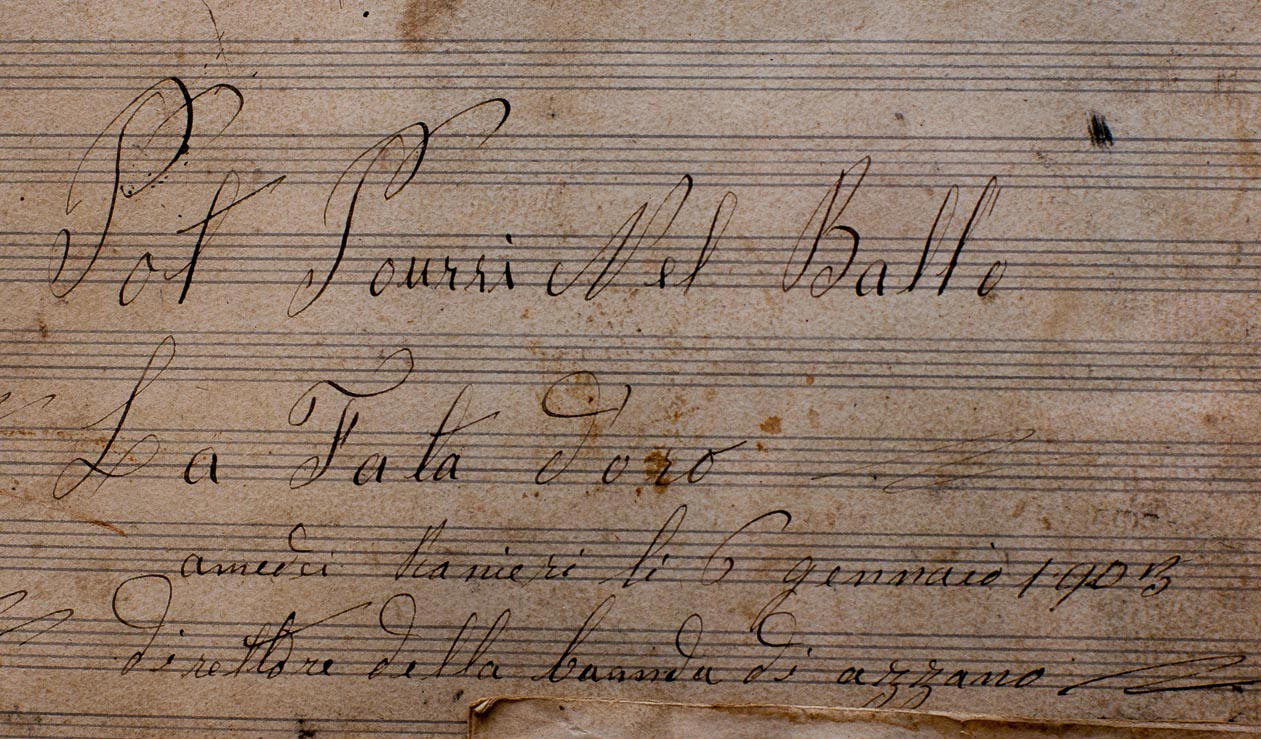 Pot Pourri Nel Ballo
La Fata d'oro
amedei Ranieri li 6 gennaio 1903
direttore della baanda di azzano